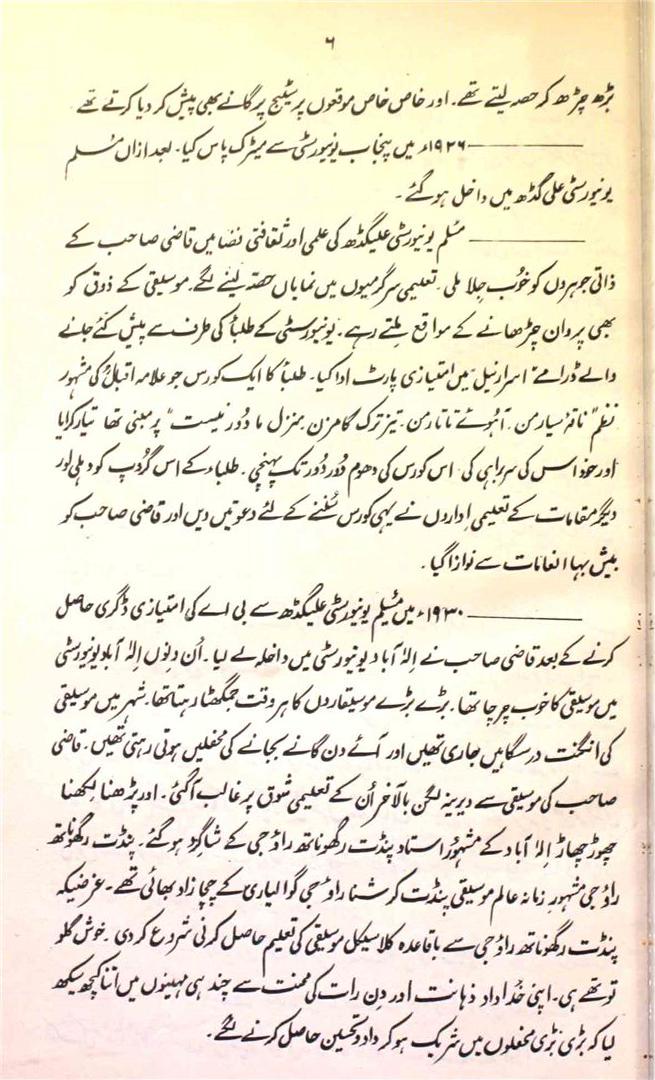 ۶
بڑھ چڑھ کر حصہ لیتے تھے۔ اور خاص خاص موقعوں پر سٹیج پر گانے بھی پیش کر دیا کرتے تھے
۱۹۲۶ء میں پنجاب یونیورسٹی سے میٹرک پاس کیا۔ بعد ازاں مُسلم
یونیورسٹی علی گڈھ میں داخل ہو گئے۔
مُسلم یونیورسٹی علیگڈھ کی علمی اور ثقافتی فضا میں قاضی صاحب کے
ذاتی جوہروں کو خُوب جِلا ملی۔ تعلیمی سرگرمیوں میں نمایاں حصّہ لینے لگے۔ موسیقی کے ذوق کو
بھی پروان چڑھانے کے مواقع ملتے رہے۔ یونیورسٹی کے طلبأ کی طرف سے پیش کئے جانے
والے ڈرامے "اسرائیل" میں امتیازی پارٹ ادا کیا۔ طلبأ کا ایک کورس جو علامہ اقبالؒ کی مشہور
نظم "ناقۂ سیار من۔ آہُوئے تاتار من۔ تیز ترک گامزن منزل ما دُور نیست" پر مبنی تھا تیار کرایا
اور خود اس کی سربراہی کی۔ اس کورس کی دھوم دُور دُور تک پہنچی۔ طلباء کے اس گروپ کو دہلی اور
دیگر مقامات کے تعلیمی اِداروں نے یہی کورس سُننے کے لئے دعوتیں دیں اور قاضی صاحب کو
بیش بہا انعامات سے نوازا گیا۔
۱۹۳۰ء میں مُسلم یونیورسٹی علیگڈھ سے بی اے کی امتیازی ڈگری حاصل
کرنے کے بعد قاضی صاحب نے اِلہٰ آباد یونیورسٹی میں داخلہ لے لیا۔ اُن دنوں اِلہٰ آباد یونیورسٹی
میں موسیقی کا خوب چرچا تھا۔ بڑے بڑے موسیقاروں کا ہر وقت جمگھٹا رہتا تھا۔ شہر میں موسیقی
کی انگنت درسگاہیں جاری تھیں اور آئے دن گانے بجانے کی محفلیں ہوتی رہتی تھیں۔ قاضی
صاحب کی موسیقی سے دیرینہ لگن بالآخر اُن کے تعلیمی شوق پر غالب آگئی۔ اور پڑھنا لِکھنا
چھوڑ چھاڑ اِلہٰ آباد کے مشہُور استاد پنڈت رگھوناتھ راؤ جی کے شاگِرد ہو گئے۔ پنڈت رگھوناتھ
راؤ جی مشہورِ زمانہ عالم موسیقی پنڈت کرشنا راؤ جی گوالیاری کے چچا زاد بھائی تھے۔ غرضیکہ
پنڈت رگھوناتھ راؤ جی سے باقاعدہ کلاسیکل موسیقی کی تعلیم حاصل کرنی شروع کر دی۔ خوش گلو
تو تھے ہی۔ اپنی خُداداد ذہانت اور دِن رات کی محنت سے چند ہی مہینوں میں اتنا کچھ سیکھ
لیا کہ بڑی بڑی محفلوں میں شریک ہو کر داد و تحسین حاصل کرنے لگے۔